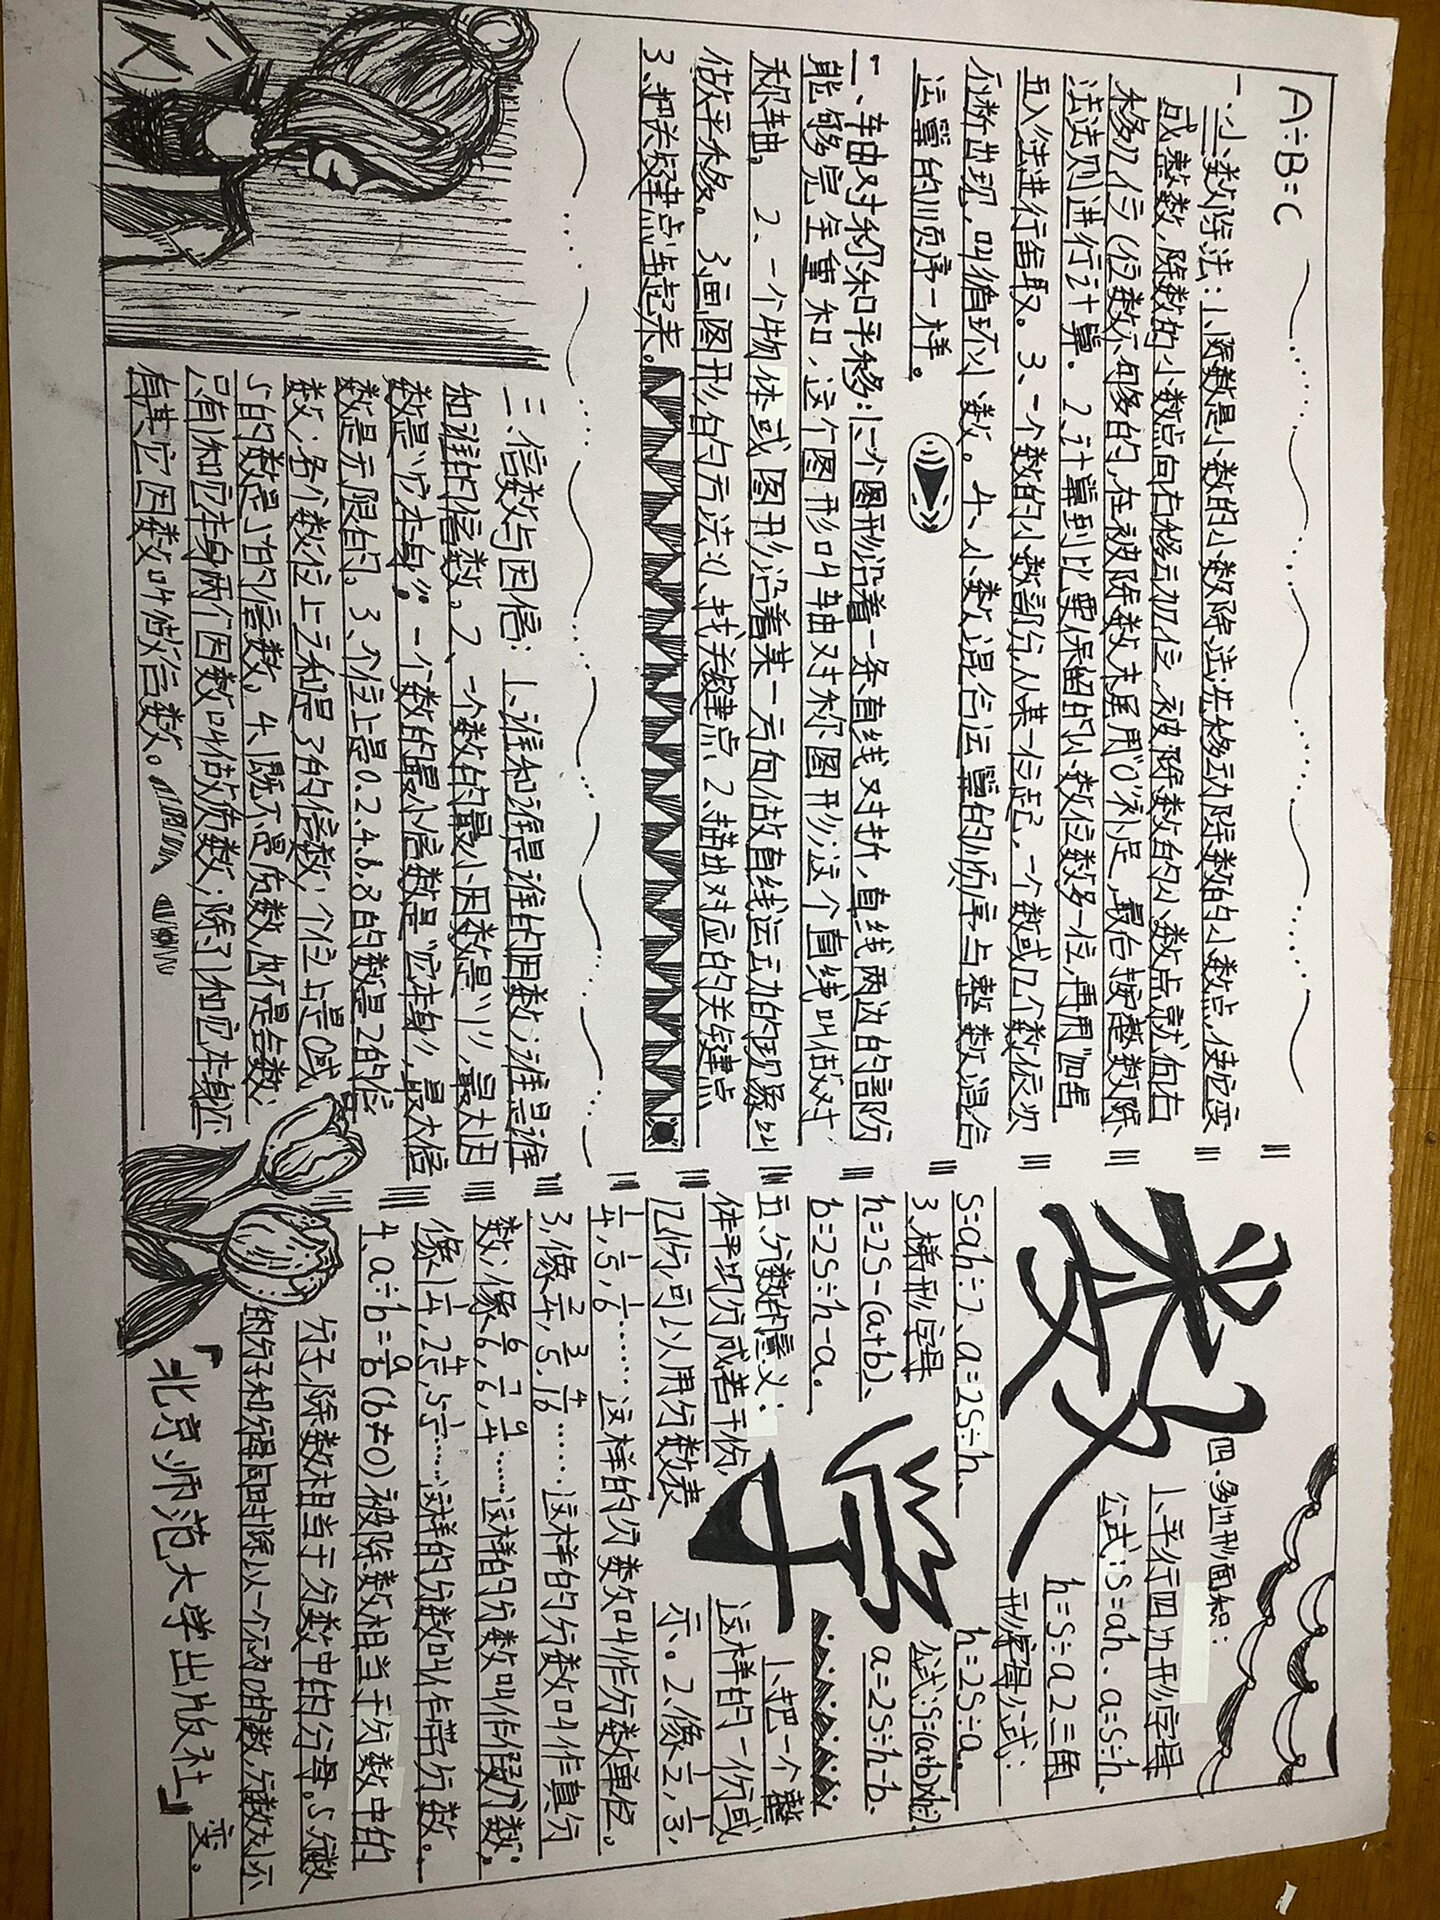 A÷B=C
一、小数除法：1、除数是小数的小数除法：先移动除数的小数点，使它变
成整数，除数的小数点向右移动几位，被除数的小数点就向右
移多几位（位数不够的，在被除数末尾用"0"补足，最后按整数除
法法则进行计算．2、计算到比要保留的小数位数多一位，再用"四舍
五入"法进行舍取。3、一个数的小数部分，从某一位起，一个数或几个数依次
不断出现，叫循环小数。4、小数混合运算的顺序与整数混合
运算的顺序一样。
二、轴对称和平移：1、一个图形沿着一条直线对折，直线两边的部分
能够完全重和，这个图形叫轴对称图形，这个直线叫做对
称轴。2、一个物体或图形沿着某一方向做直线运动的现象叫
做平移。3、画图形的方法：1、找关键点 2、描出对应的关键点
3、把关键点连起来。
三、倍数与因倍：1、谁和谁是谁的因数；谁是谁
和谁的倍数。2、一个数的最小因数是"1"，最大因
数是"它本身"。一个数的最小倍数是"它本身"，最大倍
数是无限的。3、个位上是0.2.4.6.8的数是2的倍
数；各个数位上之和是3的倍数；个位上是0或
5的数是5的倍数。4、既不是质数，也不是合数
只有1和它本身两个因数叫做质数；除了1和它本身还
有其它因数叫做合数。
数学
四、多边形面积：
1、平行四边形字母
公式：S=ah、a=S÷h、
h=S÷a 2、三角
形字母公式：
S=ah÷2、a=2S÷h、
h=2S÷a。
3、梯形字母
公式：S=(a+b)xh÷2
h=2S÷(a+b)、
a=2S÷h-b、
b=2S÷h-a。
五、分数的意义：
1、把一个整
体平均分成若干份，
这样的一份或
几份，可以用分数表
示。2、像1/2，1/3，
1/4，1/5，1/6……这样的分数叫作分数单位。
3，像2/4，3/5，4/16……这样的分数叫作真分
数；像6/6，7/6，9/4……这样的分数叫作假分数；
像1 1/4，2 4/5，5 1/3……这样的分数叫作带分数。
4、a÷b=a/b(b≠0)被除数相当于分数中的
分子，除数相当于分数中的分母。5、分数
的分子和分母同时除以一个不为0的数，分数大小不
变。
『北京师范大学出版社』